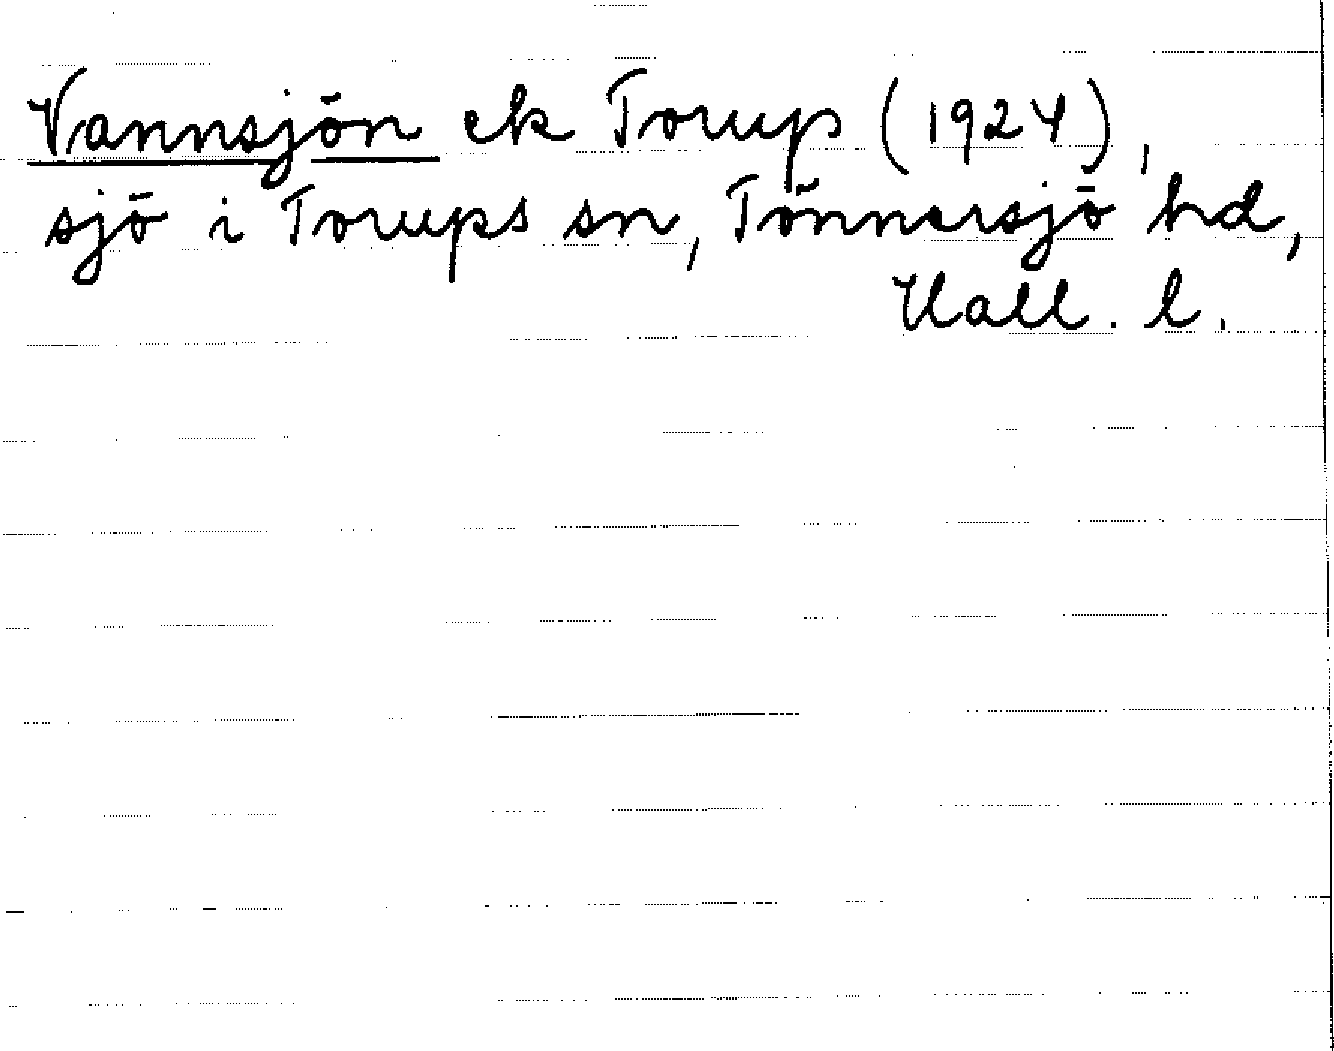 Vannsjön ek Torup (1924),
sjö i Torups sn, Tönnersjö hd,
Hall. l.